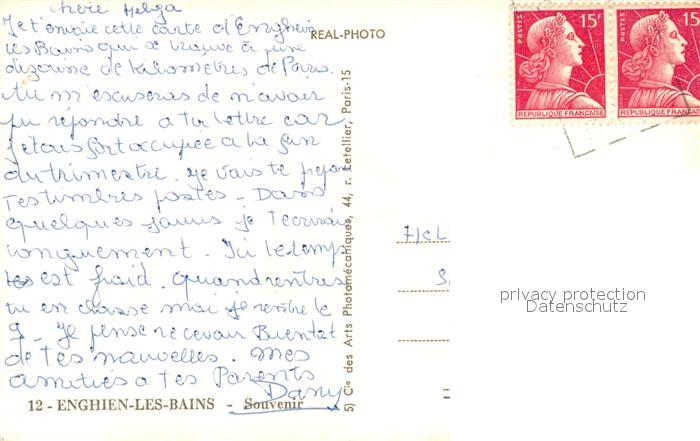 chère Helga
Je t'envoie cette carte d'Enghien
les Bains qui se trouve à une
dizaine de kilomètres de Paris.
Tu m'escuseras de n'avoir
pu répondre a ta lettre car
j'étais fort occupée a la fin
du trimestre. Je vais te
tes timbres postes - Dans
quelques jours je t'ecrirai
longuement. Ici le temps
est froid. quand rentres
tu en classe moi je rentre le
9 - Je pense recevoir Bientot
de tes nouvelles. Mes
amitiés a tes Parents
Dany
12 - ENGHIEN-LES-BAINS - Souvenir
REAL-PHOTO
5) Cie des Arts Photomécaniques, 44, r. Letellier, Paris-15
POSTES 15F
REPUBLIQUE FRANÇAISE
POSTES 15
REPUBLIQUE FRANÇAISE
privacy protection
Datenschutz